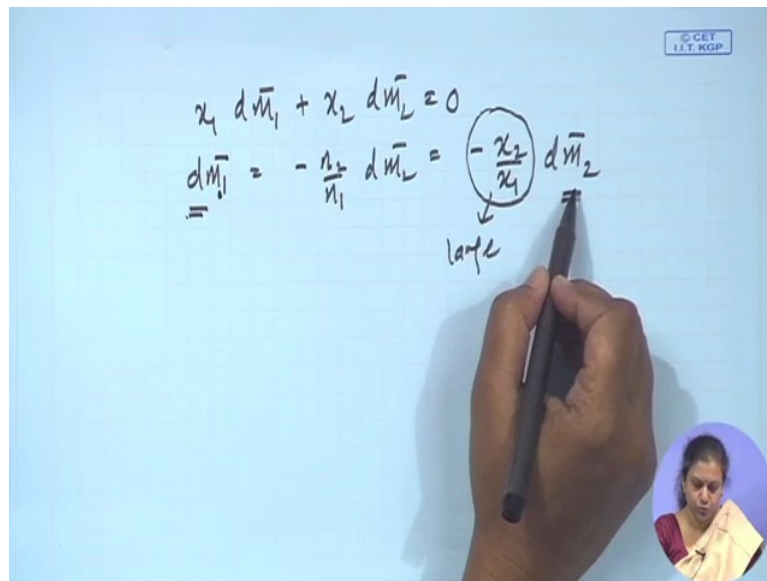 © CET
I.I.T. KGP
x₁ dm̄₁ + x₂ dm̄₂ = 0
dm̄₁ = - n₂/n₁ dm̄₂ = - x₂/x₁ dm̄₂
large